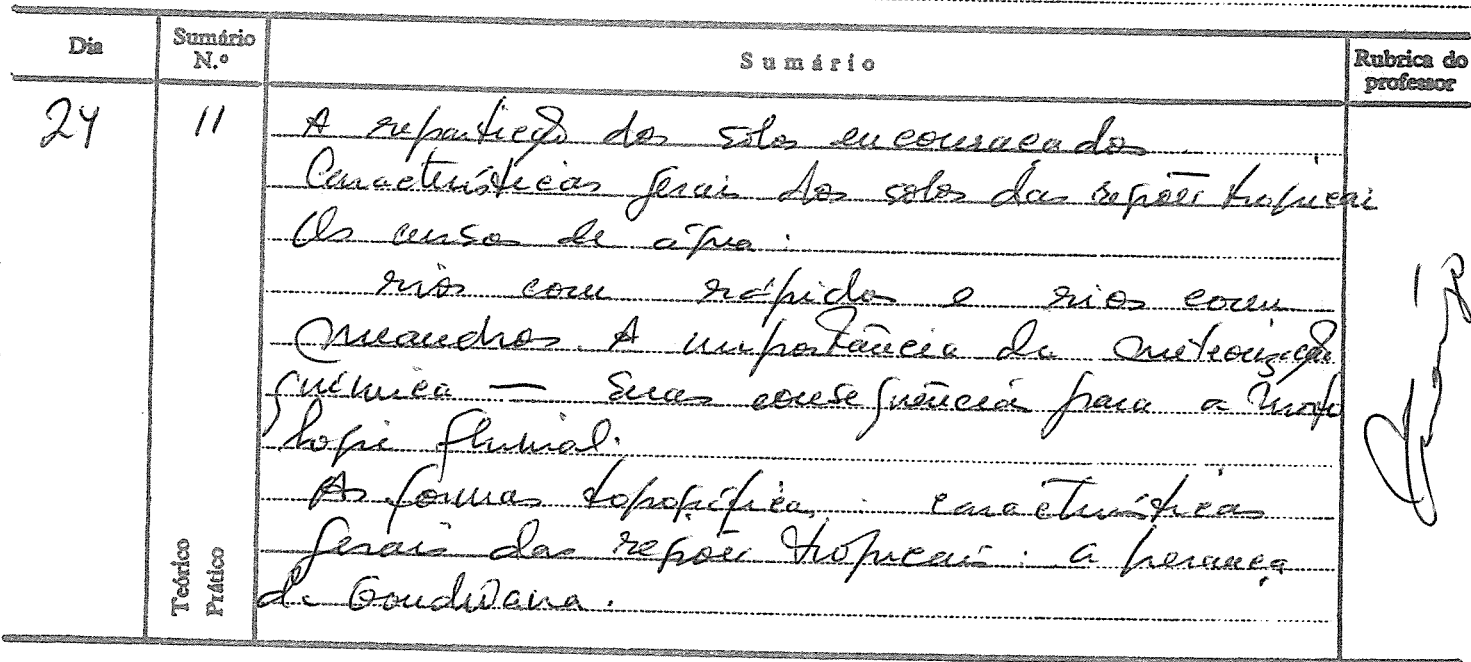 Dia Sumário N.º Sumário Rubrica do professor
24 11 A repartição dos solos encouraçados
Características gerais dos solos das regiões tropicais
Os cursos de água:
rios com rápidos e rios com
meandros. A importância da meteorização
química — Suas consequências para a morfo
logia fluvial.
As formas topográficas: características
gerais das regiões tropicais: a herança
de Gondwana.
Teórico
Prático